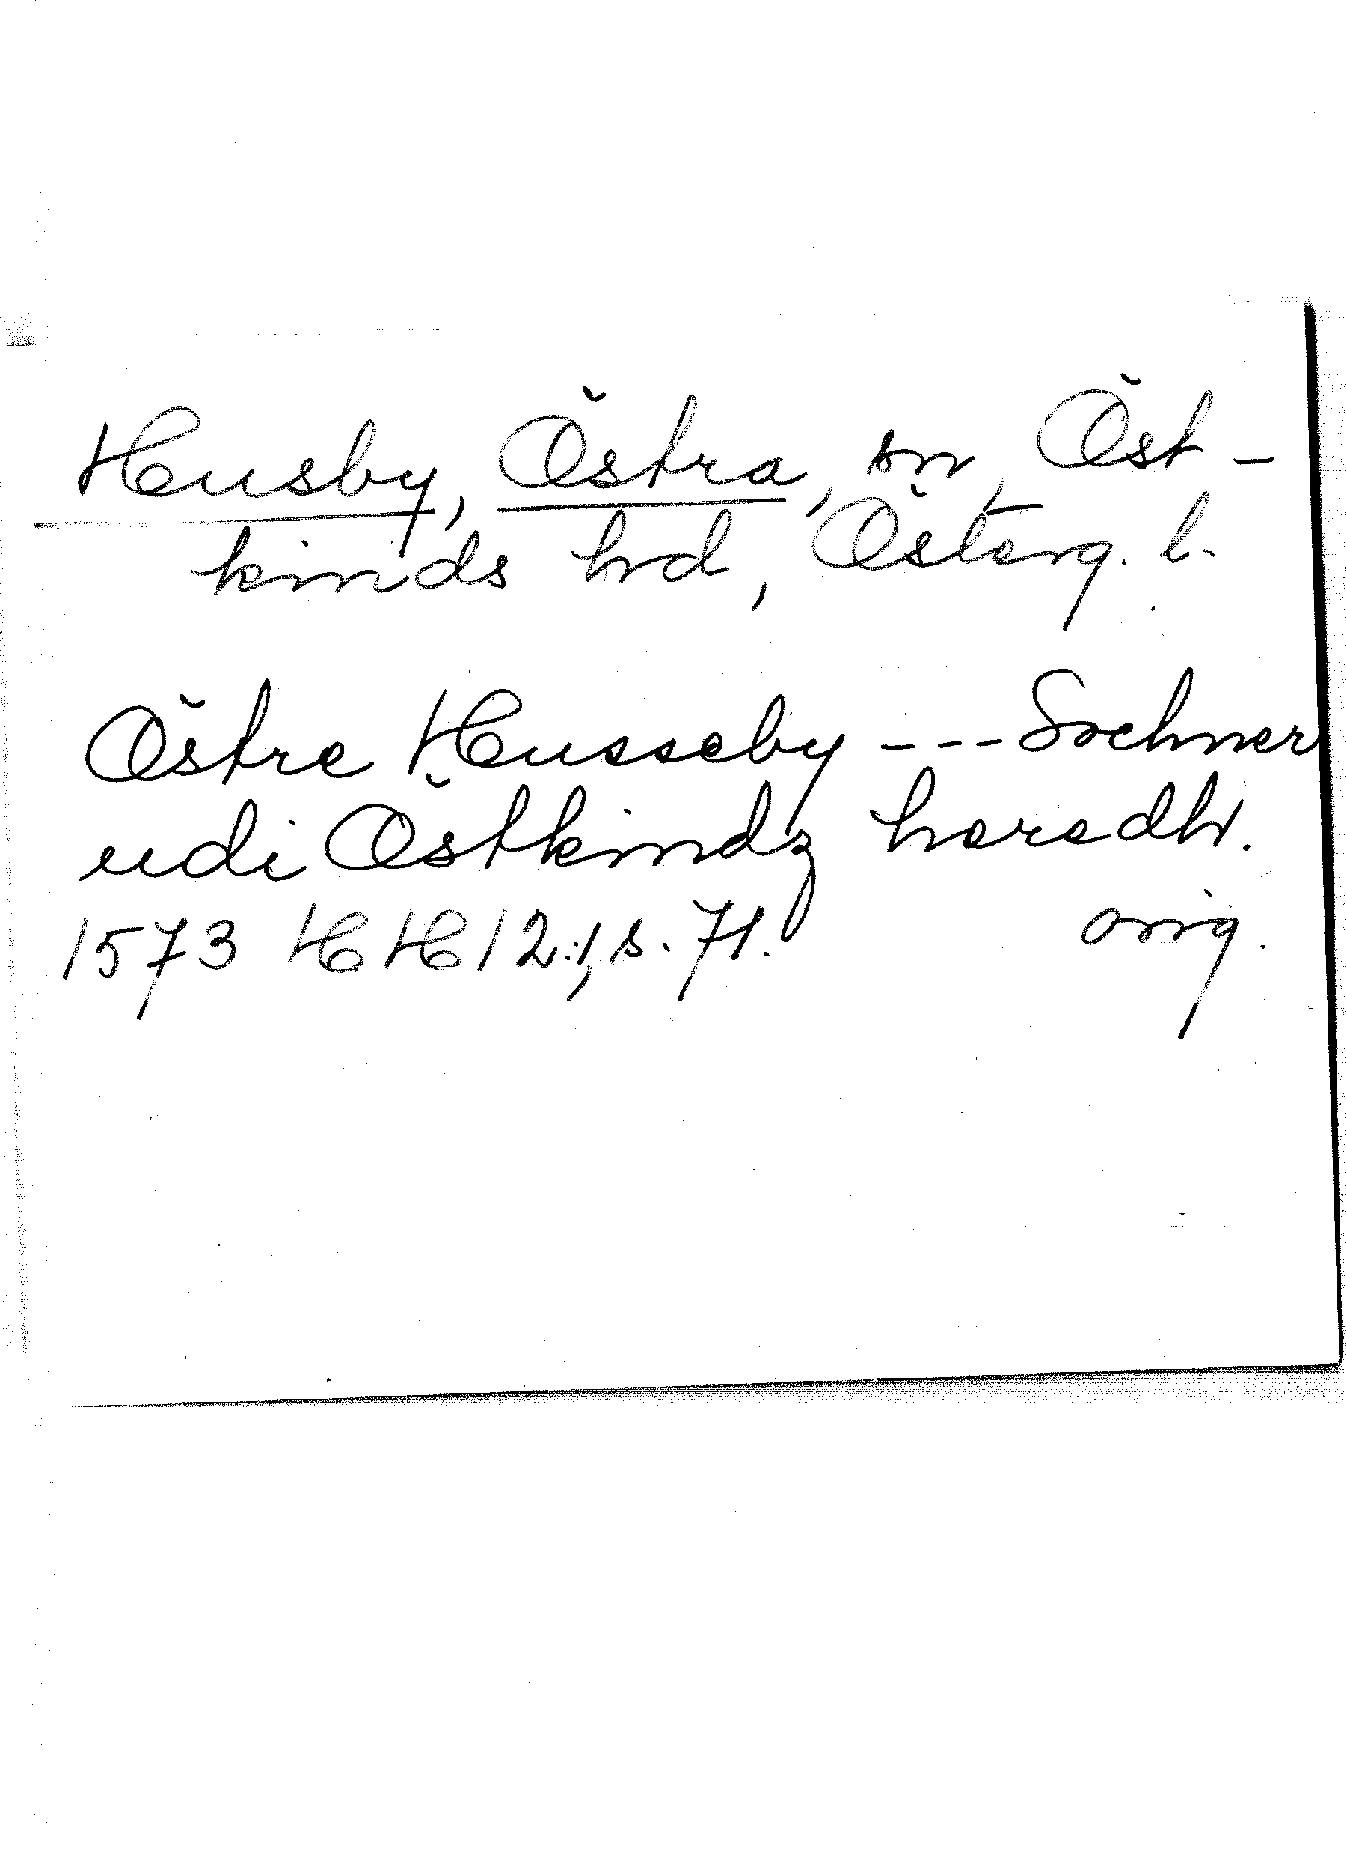 Husby, Östra, sn, Öst-
kinds hrd, Österg. l.
Östre Husseby --- Sochner
udi Östkindz haredh.
1573 HH 12:1, s. 71. orig.